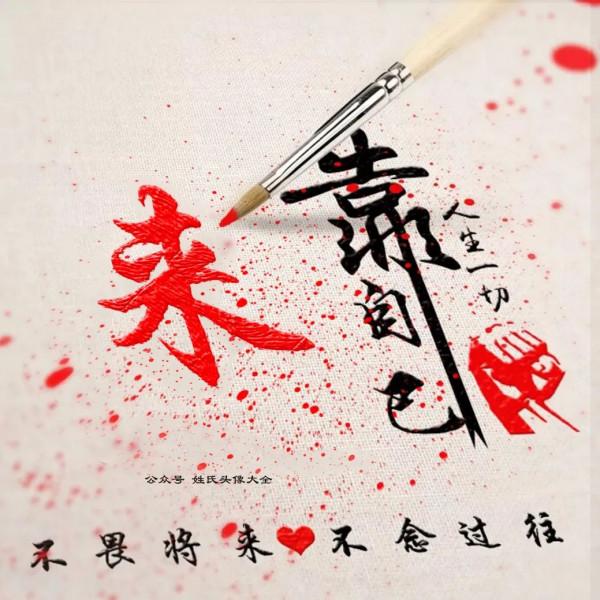 来
人生一切
靠自己
公众号 姓氏头像大全
不畏将来❤不念过往